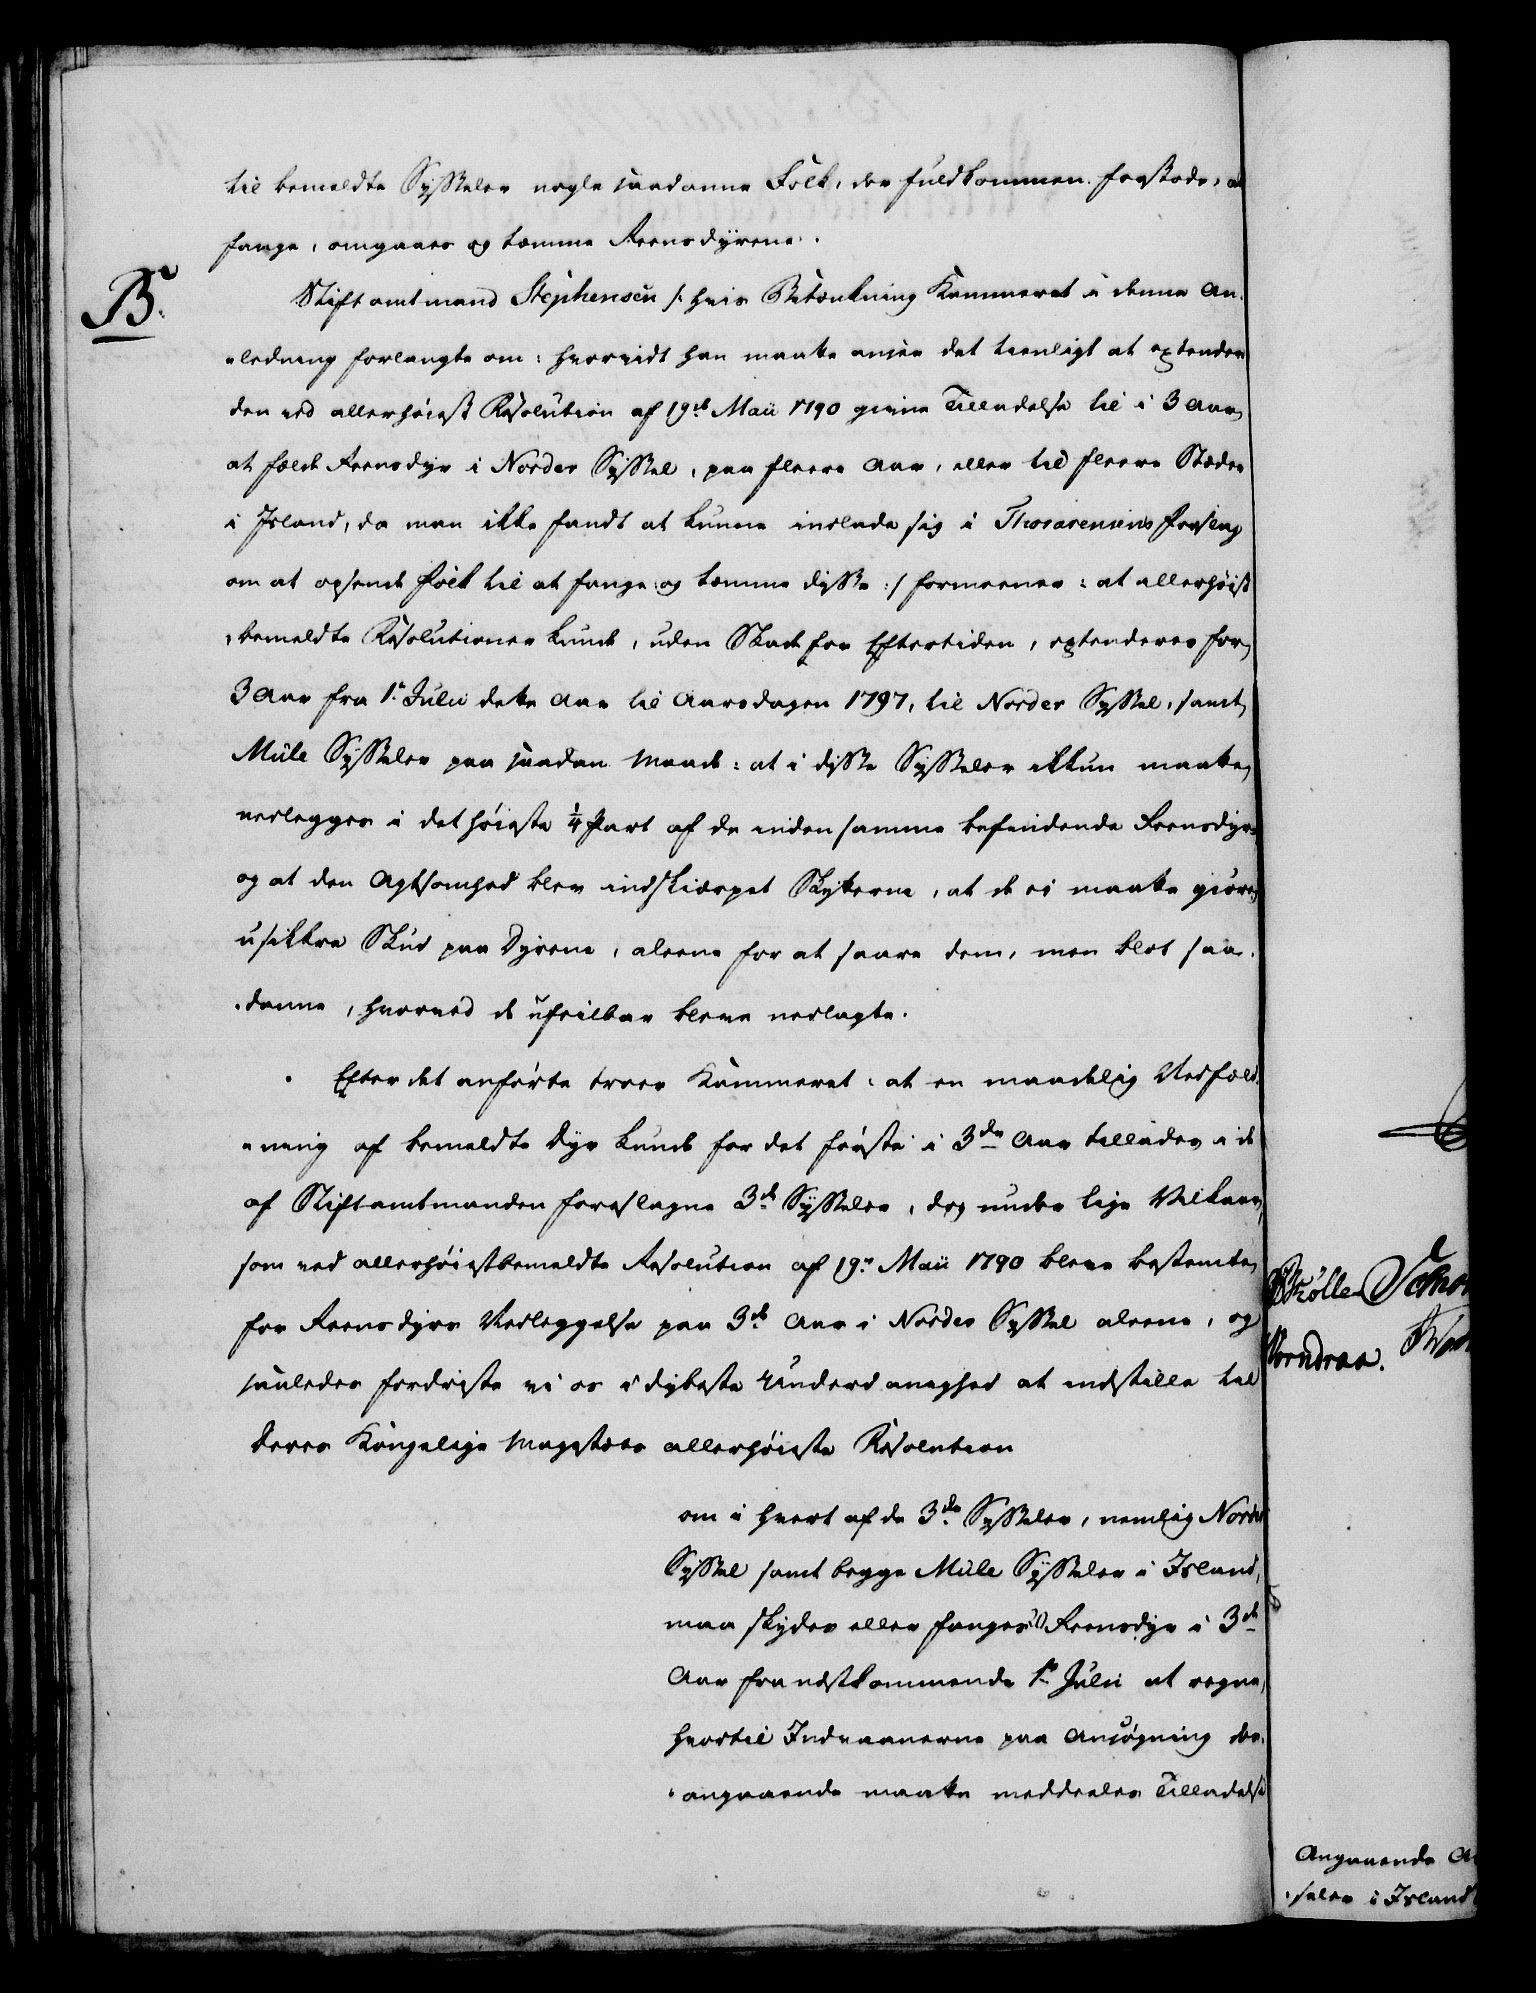 til bemeldte Sysseler nogle saadanne Folk, der fuldkommen forstode, at
fange, omgaaes og tæmme Reensdyrene.
B.
Stiftamtmand Stephensen /: hvis Betænkning Kammeret i denne An-
-ledning forlangte om: hvorvidt han maatte ansee det tienligt at extendere
den ved allerhøiest Resolution af 19de Maii 1790 givne Tilladelse til i 3 Aar
at fælde Reensdyr i Norder Syssel, paa fleere Aar, eller til fleere Stæder
i Island, da man ikke fandt at kunne indlade sig i Thorarensens Forslag
om at opsende Folk til at fange og tæmme disse :/ formeener: at allerhøist-
-bemeldte Resolutioner kunde, uden Skade for Eftertiden, extenderes for
3 Aar fra 1te Julii dette Aar til Aarsdagen 1797, til Norder Syssel, samt
Mule Sysseler paa saadan Maade: at i disse Sysseler ikkun maatte
nedlegges i det høieste 1/4 Part af de inden samme befindende Reensdyr,
og at den Agtsomhed blev indskiærpet Skytterne, at de ei maatte giøre
usikkre Skud paa Dyrene, aleene for at saare dem, men blot saa-
-danne, hvorved de ufeilbar bleve nedlagte.
Efter det anførte troer Kammeret: at en maadelig Nedfæld-
-ning af bemeldte Dyr kunde for det første i 3de Aar tillades i de
af Stiftamtmanden foreslagne 3de Sysseler, dog under lige Vilkaar,
som ved allerhøistbemeldte Resolution af 19de Maii 1790 bleve bestemte
for Reensdyrs Nedleggelse paa 3de Aar i Norder Syssel aleene, og
saaledes fordriste vi os i dybeste Underdanighed at indstille til
Deres Kongelige Majestæts allerhøieste Resolution
om i hvert af de 3de Sysseler, nemlig Norder
Syssel samt begge Mule Sysseler i Island,
maa skydes eller fanges Reensdyr i 3de
Aar fra nestkommende 1te Julii at regne,
hvortil Indvaanerne paa Ansøgning der-
-angaaende maatte meddeeles Tilladelse
Angaaende
-seler i Island